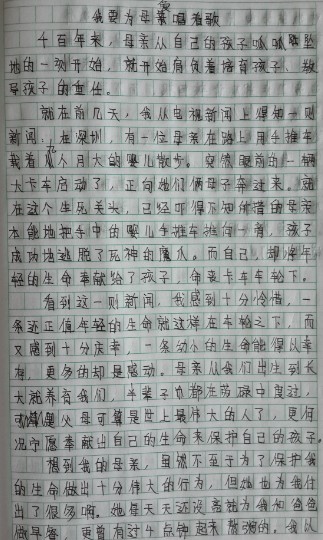 我要为母亲唱首歌
千百年来,母亲从自己的孩子呱呱坠
地的一刻开始,就开始肩负着培育孩子、教
导孩子的重任。
就在前几天,我从电视新闻上得知一则
新闻:在深圳,有一位母亲在路上用手推车
载着九个月大的婴儿散步。突然眼前的一辆
大卡车启动了,正向她们俩母子奔过来。就
在这个生死关头,已经吓得不知所措的母亲
本能地把手中的婴儿手推车推向一旁,孩子
成功地逃脱了死神的魔爪。而自己,却将年
轻的生命奉献给了孩子,命丧卡车车轮下。
看到这一则新闻,我感到十分怜惜,一
条还正值年轻的生命就这样在车轮之下,而
又感到十分庆幸,一条幼小的生命能得以幸
存,更多的却是感动。母亲从我们出生到长
大就养育我们,半辈子也都在劳碌中度过,
可算是父母可算是世上最伟大的人了,更何
况宁愿奉献出自己的生命来保护自己的孩子。
想到我的母亲,虽然不至于为了保护我
的生命做出十分伟大的行为,但她也为我付
出了很多啊。她每天天还没亮就为我和爸爸
做早餐,更曾有过4点钟起来熬粥的。我从